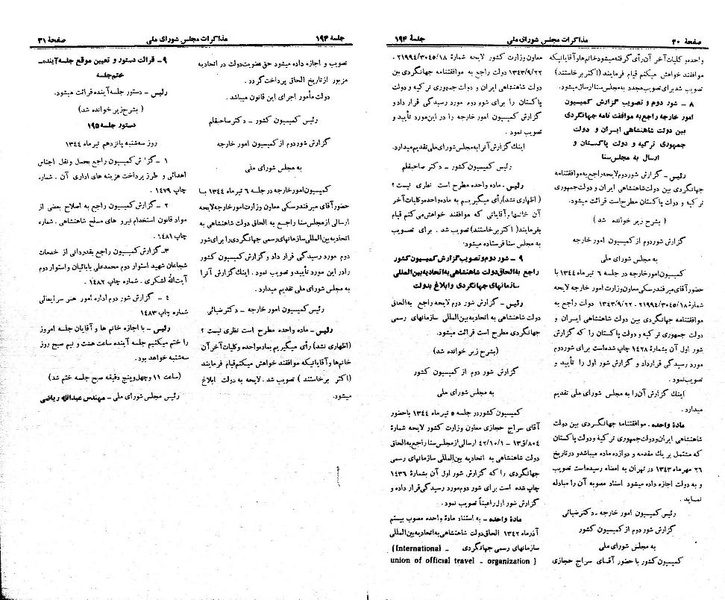 صفحهٔ ۳۰ مذاکرات مجلس شورای ملی جلسهٔ ۱۹۴
واحده و کلیات آخر آن رأی گرفته میشود خانمها و آقایانیکه
موافقند خواهش میکنم قیام فرمایند (اکثر برخاستند)
تصویب شد برای تصویب مجدد به مجلس سنا ارسال میشود.
۸ - شور دوم و تصویب گزارش کمیسیون
امور خارجه راجع به موافقت نامه جهانگردی
بین دولت شاهنشاهی ایران و دولت
جمهوری ترکیه و دولت پاکستان و
ارسال به مجلس سنا
رئیس - گزارش شور دوم لایحه راجع به موافقتنامه
جهانگردی بین دولت شاهنشاهی ایران و دولت جمهوری
ترکیه و دولت پاکستان مطرح است قرائت میشود.
(بشرح زیر خوانده شد)
گزارش شور دوم از کمیسیون امور خارجه
به مجلس شورای ملی
کمیسیون امور خارجه در جلسه ۶ تیر ماه ۱۳۴۴ با
حضور آقای میرفندرسکی معاون وزارت امور خارجه لایحه
شمارهٔ ۲۱۹۹۴/۳۰۴۵/۱۸ - ۱۳۴۳/۹/۲۲ دولت راجع به
موافقتنامه جهانگردی بین دولت شاهنشاهی ایران و دولت
جمهوری ترکیه و دولت پاکستان را که گزارش
شور اول آن بشمارهٔ ۱۴۲۸ چاپ شده است برای شور دوم
مورد رسیدگی قرار داد و گزارش شور اول را تأیید و
تصویب نمود.
اینک گزارش آن را به مجلس شورای ملی تقدیم
میدارد.
ماده واحده - موافقتنامه جهانگردی بین دولت
شاهنشاهی ایران و دولت جمهوری ترکیه و دولت پاکستان
که مشتمل بر یک مقدمه و دوازده ماده میباشد و در تاریخ
۲۶ مهر ماه ۱۳۴۳ در تهران به امضاء رسیده است تصویب
و به دولت اجازه داده میشود اسناد مصوبه آن را مبادله
نماید.
رئیس کمیسیون امور خارجه - دکتر ضیائی
گزارش شور دوم از کمیسیون کشور
به مجلس شورای ملی
کمیسیون کشور با حضور آقای سراج حجازی
معاون وزارت کشور لایحه شمارهٔ ۲۱۹۹۴/۳۰۴۵/۱۸ -
۱۳۴۳/۹/۲۲ دولت راجع به موافقتنامه جهانگردی بین
دولت شاهنشاهی ایران و دولت جمهوری ترکیه و دولت
پاکستان را برای شور دوم مورد رسیدگی قرار داد و
گزارش کمیسیون امور خارجه را در این مورد تأیید و
تصویب نمود.
اینک گزارش آنرا به مجلس شورای ملی تقدیم میدارد.
رئیس کمیسیون کشور - دکتر صاحبقلم
رئیس - ماده واحده مطرح است نظری نیست ؟
(اظهاری نشد) رأی میگیریم به ماده واحده و کلیات آخر
آن خانمها و آقایانی که موافقند خواهش میکنم قیام
بفرمایند (اکثر برخاستند) تصویب شد. برای تصویب
به مجلس سنا فرستاده میشود.
۹ - شور دوم و تصویب گزارش کمیسیون کشور
راجع به الحاق دولت شاهنشاهی به اتحادیه بین‌المللی
سازمانهای جهانگردی و ابلاغ بدولت
رئیس - گزارش شور دوم لایحه راجع به الحاق
دولت شاهنشاهی به اتحادیه بین‌المللی سازمانهای رسمی
جهانگردی مطرح است قرائت میشود.
(بشرح زیر خوانده شد)
گزارش شور دوم از کمیسیون کشور
به مجلس شورای ملی
کمیسیون کشور در جلسه ۵ تیر ماه ۱۳۴۴ با حضور
آقای سراج حجازی معاون وزارت کشور لایحه شمارهٔ
۸۰۴/ق۱۳ - ۴۲/۱۰/۱ ارسالی از مجلس سنا راجع به الحاق
دولت شاهنشاهی به اتحادیه بین‌المللی سازمانهای رسمی
جهانگردی را که گزارش شور اول آن بشمارهٔ ۱۴۳۶
چاپ شده است برای شور دوم مورد رسیدگی قرار داده و
گزارش شور اول را عیناً تصویب نمود.
مادهٔ واحده - به استناد مادهٔ واحده مصوب بیستم
آذر ماه ۱۳۴۲ الحاق دولت شاهنشاهی به اتحادیه بین‌المللی
سازمانهای رسمی جهانگردی - (International
union of official travel - organization)
صفحهٔ ۳۱ مذاکرات مجلس شورای ملی جلسهٔ ۱۹۴
تصویب و اجازه داده میشود حق عضویت دولت در اتحادیه
مزبور از تاریخ الحاق پرداخت گردد.
دولت مأمور اجرای این قانون میباشد.
رئیس کمیسیون کشور - دکتر صاحبقلم
گزارش شور دوم از کمیسیون امور خارجه
به مجلس شورای ملی
کمیسیون امور خارجه در جلسه ۶ تیر ماه ۱۳۴۴ با
حضور آقای میرفندرسکی معاون وزارت امور خارجه لایحه
ارسالی از مجلس سنا راجع به الحاق دولت شاهنشاهی به
اتحادیه بین‌المللی سازمانهای رسمی جهانگردی را برای شور
دوم مورد رسیدگی قرار داد و گزارش کمیسیون کشور
را در این مورد تأیید و تصویب نمود. اینک گزارش آنرا
به مجلس شورای ملی تقدیم میدارد.
رئیس کمیسیون امور خارجه - دکتر ضیائی
رئیس - ماده واحده مطرح است نظری نیست ؟
(اظهاری نشد) رأی میگیریم به ماده واحده و کلیات آخر آن
خانمها و آقایانیکه موافقند خواهش میکنم قیام فرمایند
(اکثر برخاستند) تصویب شد. لایحه به دولت ابلاغ
میشود.
۹ - قرائت دستور و تعیین موقع جلسه آینده -
ختم جلسه
رئیس - دستور جلسه آینده قرائت میشود.
(بشرح زیر خوانده شد)
دستور جلسه ۱۹۵
روز سه‌شنبه پانزدهم تیر ماه ۱۳۴۴
۱ - گزارش کمیسیون راجع بحمل و نقل اجناس
اهدائی و طرز پرداخت هزینه های اداری آن . شماره
چاپ ۱۴۷۹
۲ - گزارش کمیسیون راجع به اصلاح بعضی از
مواد قانون استخدام نیرو های مسلح شاهنشاهی. شماره
چاپ ۱۴۸۱
۳ - گزارش کمیسیون راجع بقدردانی از خدمات
شجاعان شهید استوار دوم محمدعلی بابائیان و استوار دوم
آیت‌الله لشکری. شماره چاپ ۱۴۸۲
۴ - گزارش شور دوم اداره امور حسر سر تیمائی
شماره چاپ ۱۴۸۳
رئیس - با اجازه خانم ها و آقایان جلسه امروز
را ختم میکنیم جلسه آینده ساعت هشت و نیم صبح روز
سه‌شنبه خواهد بود.
(ساعت ۱۱ و چهل و پنج دقیقه صبح جلسه ختم شد)
رئیس مجلس شورای ملی - مهندس عبدالله ریاضی